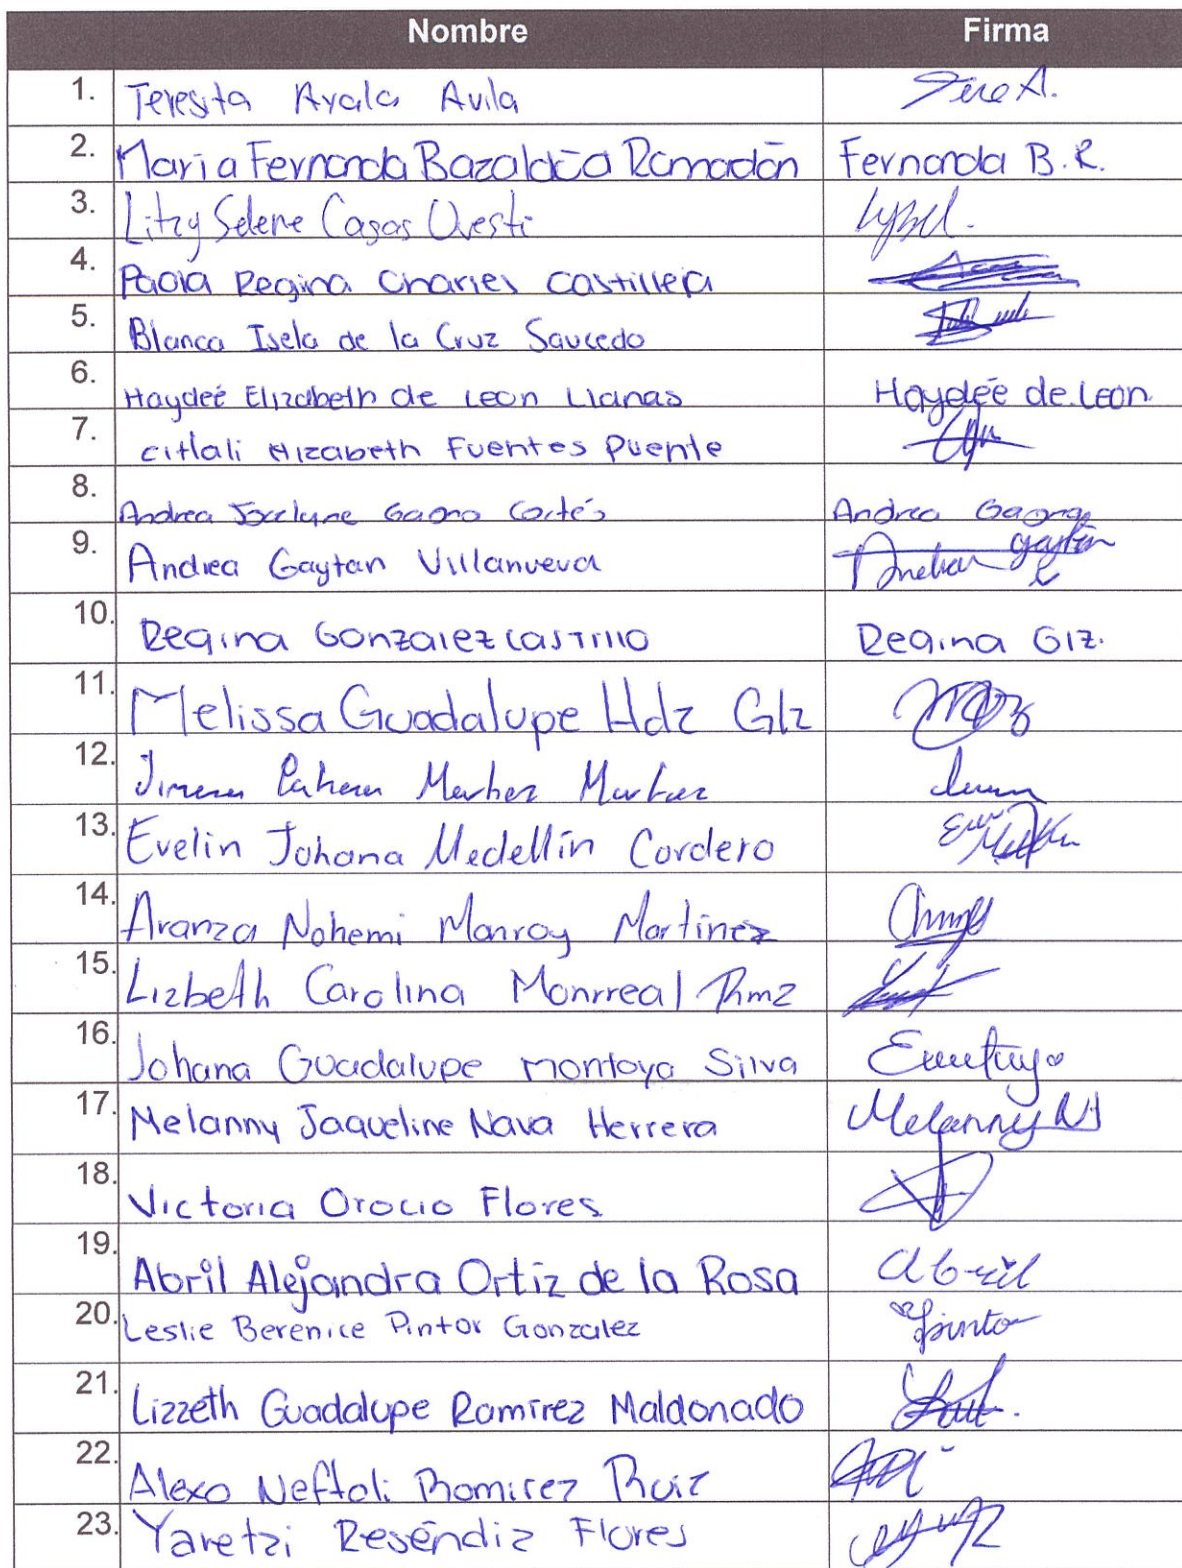 Nombre Firma
1. Teresita Ayala Avila Tere A.
2. Maria Fernanda Bazaldúa Ramadán Fernanda B.R.
3. Litzy Selene Casas
4. Paola Regina Charles Castilleja
5. Blanca Isela de la Cruz Saucedo
6. Haydeé Elizabeth de Leon Llanas Haydée de Leon
7. Citlali Elizabeth Fuentes Puente
8. Andrea Jocelyne Gaona Cortés Andrea Gaona
9. Andrea Gaytan Villanueva Gaytan
10. Regina Gonzalez Castillo Regina Glz.
11. Melissa Guadalupe Hdz Glz
12. Jimena
13. Evelin Johana Medellín Cordero
14. Aranza Nohemi Monroy Martinez
15. Lizbeth Carolina Monrreal Rmz
16. Johana Guadalupe Montoya Silva
17. Melanny Jaqueline Nava Herrera Melanny NJ
18. Victoria Orocio Flores
19. Abril Alejandra Ortiz de la Rosa Abril
20. Leslie Berenice Pintor Gonzalez Pintor
21. Lizzeth Guadalupe Ramírez Maldonado
22. Alexa Neftali Ramirez Ruiz
23. Yaretzi Reséndiz Flores